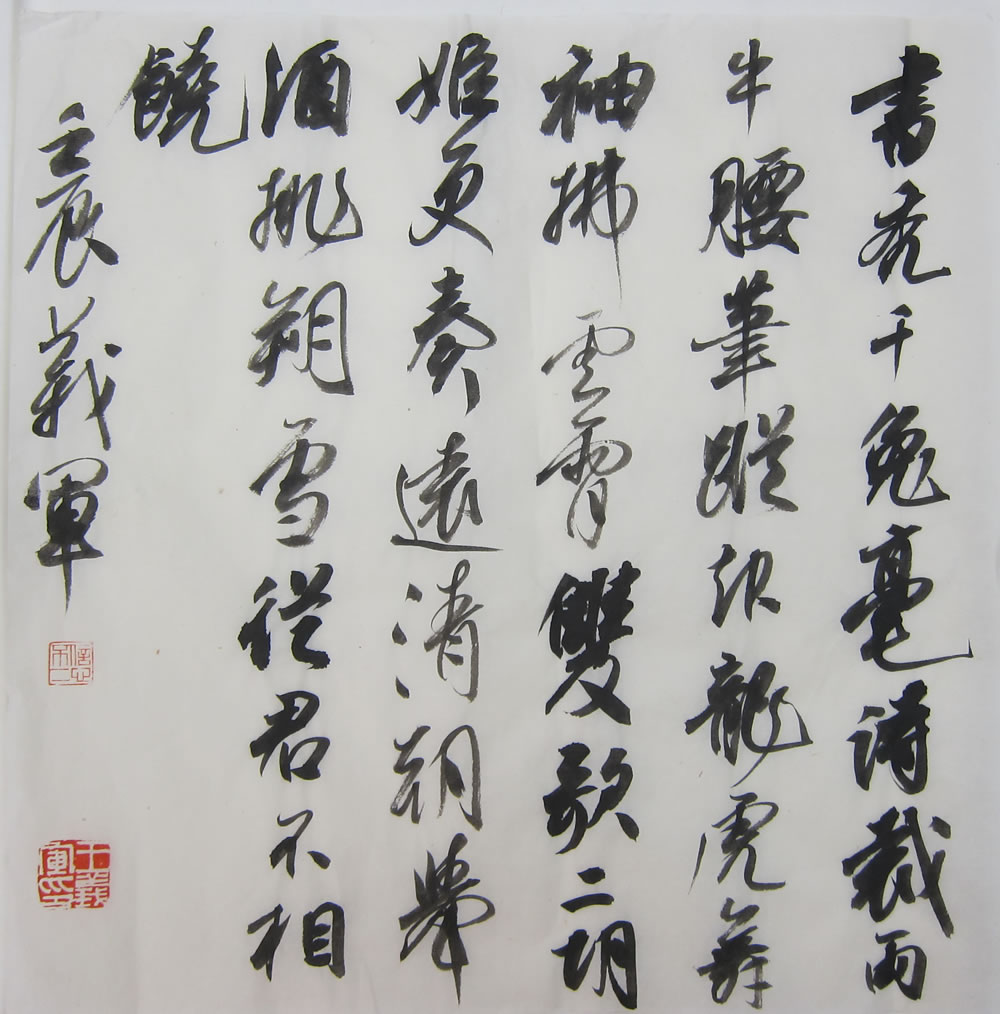 書禿千兔毫詩裁兩
牛腰筆蹤起龍虎舞
袖拂雲霄雙歌二胡
姬更奏遠清朝舉
酒挑朔雪從君不相
饒
壬辰義軍
王義軍印